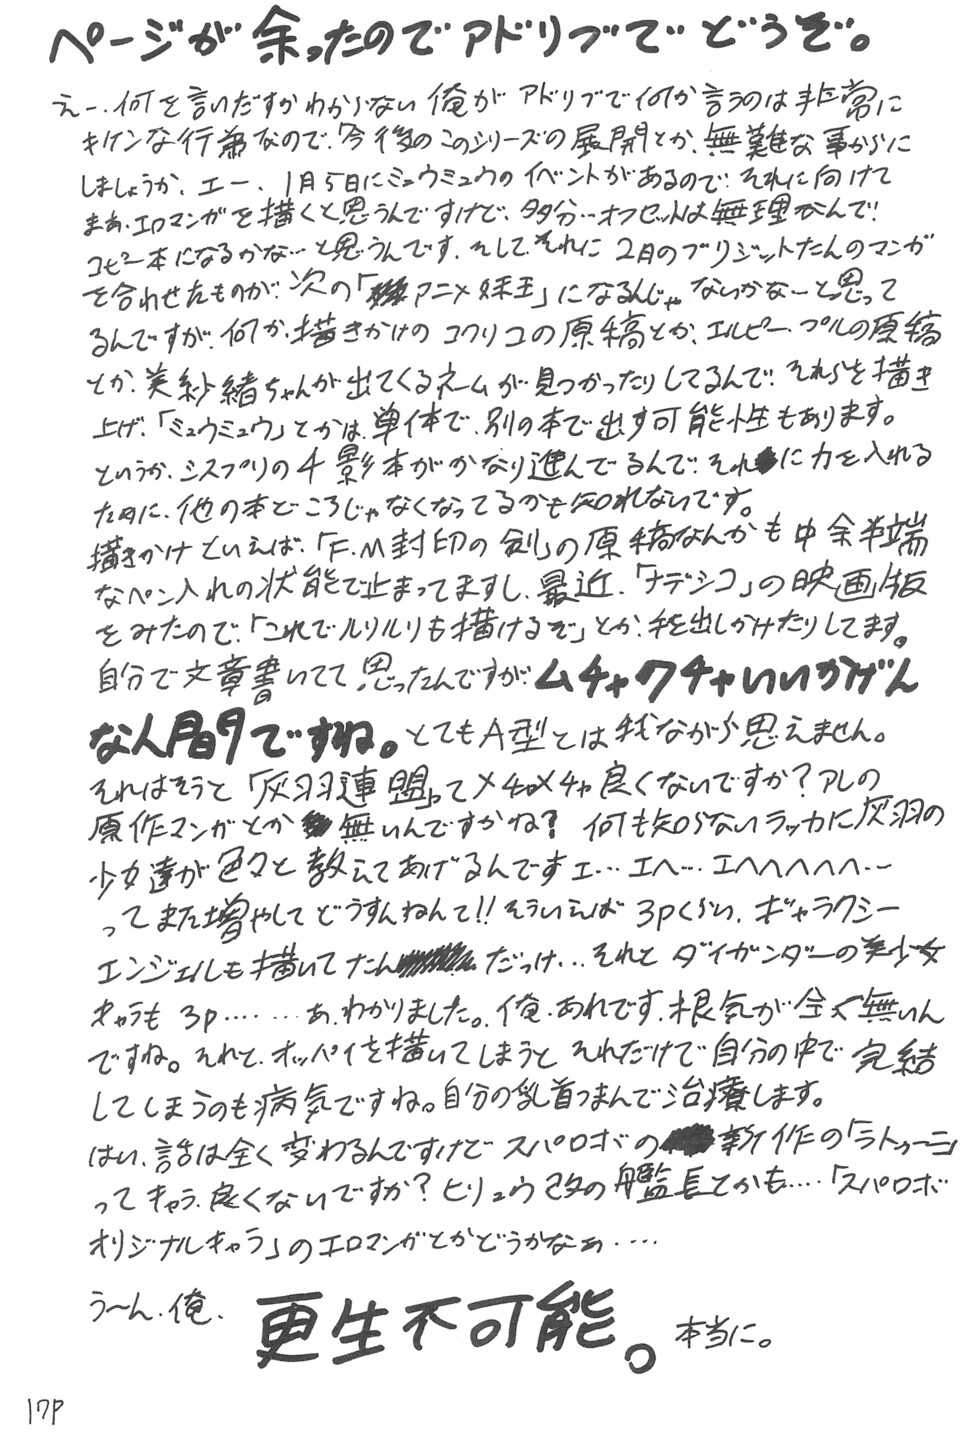 ページが余ったのでアドリブでどうぞ。
えー、何を言いだすかわからない俺がアドリブで何か言うのは非常に
キケンな行為なので、今後のこのシリーズの展開とか、無難な事からに
しましょうか、エー、1月5日にミュウミュウのイベントがあるので、それに向けて
まぁ、エロマンガを描くと思うんですけど、多分…オフセットは無理なんで、
コピー本になるかな…と思うんです、そして、それに2月のブリジットたんのマンガ
を合わせたものが、次の「アニメ妹王」になるんじゃないかなーと思って
るんですが、何か、描きかけのコクリコの原稿とか、エルピー・プルの原稿
とか、美紗緒ちゃんが出てくるネームが、見つかったりしてるんで、それらを描き
上げ、「ミュウミュウ」とかは、単体で、別の本で出す可能性もあります。
というか、シスプリの千影本がかなり進んでるんで、それに力を入れる
ために、他の本どころじゃなくなってるかも知れないです。
描きかけといえば、「F.M封印の剣」の原稿なんかも中余半端
なペン入れの状態で止まってますし、最近、「ナデシコ」の映画版
をみたので、「これでルリルリも描けるぞ」とか、手を出しかけたりしてます。
自分で文章書いてて思ったんですが、ムチャクチャいいかげん
な人間ですね。とてもA型とは我ながら思えません。
それはそうと「灰羽連盟」ってメチャメチャ良くないですか?アレの
原作マンガとか無いんですかね?何も知らないラッカに灰羽の
少女達が色々と教えてあげるんですエ…エヘ…エヘヘヘヘヘ…
ってまた増やしてどうすんねんて!!そういえば3Pくらい、ギャラクシー
エンジェルも描いてたんだっけ…それとダイガンダーの美少女
キャラも3P……あ、わかりました。俺、あれです、根気が全く無いん
ですね。それと、オッパイを描いてしまうとそれだけで自分の中で完結
してしまうのも病気ですね。自分の乳首つまんで治療します。
はい、話は全く変わるんですけどスパロボの新作の「ラトゥーニ」
ってキャラ、良くないですか?ヒリュウ改の艦長とかも…「スパロボ
オリジナルキャラ」のエロマンガとかどうかなぁ‥‥
う〜ん、俺、更生不可能。本当に。
17P